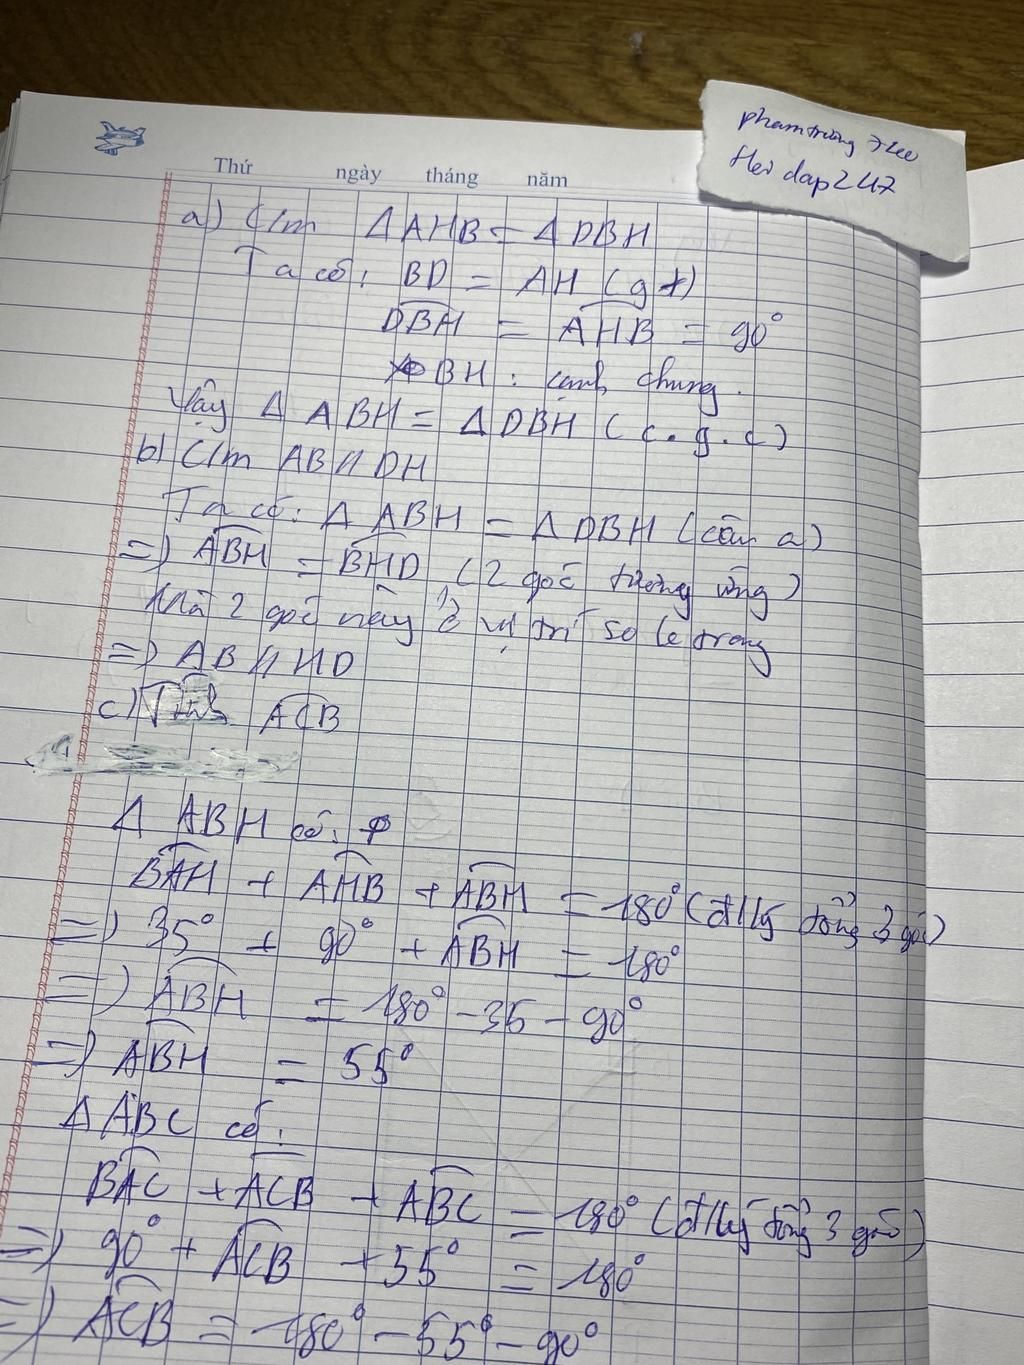 Hoi dap 247
Thứ ngày tháng năm
a) C/m ΔAHB = ΔDBH
Ta có: BD = AH (gt)
DBH = AHB = 90°
BH: cạnh chung.
Vậy Δ ABH = ΔDBH (c.g.c)
b) C/m AB // DH
Ta có: Δ ABH = ΔDBH (câu a)
=) ABH = BHD (2 góc tương ứng)
Mà 2 góc này ở vị trí so le trong
=) AB // HD
c) Tính ACB
Δ ABH có:
BAH + AHB + ABH = 180° (đ/lý tổng 3 góc)
=) 35° + 90° + ABH = 180°
=) ABH = 180° - 35 - 90°
=) ABH = 55°
Δ ABC có:
BAC + ACB + ABC = 180° (đ/lý tổng 3 góc)
=) 90° + ACB + 55° = 180°
=) ACB = 180° - 55° - 90°